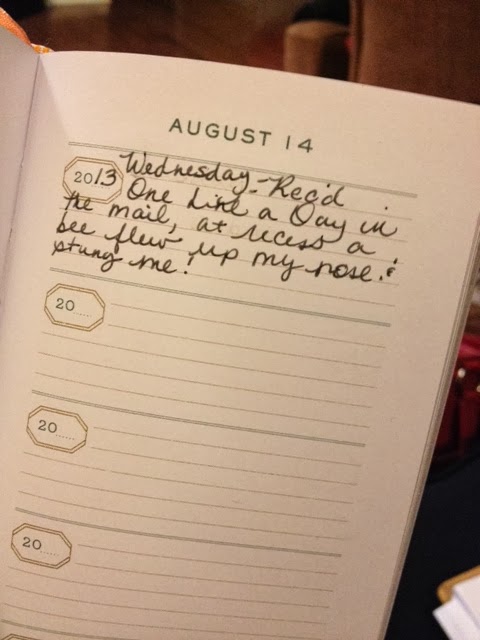 AUGUST 14
2013 Wednesday - Rec'd
One Line a Day in
the mail, at recess a
bee flew up my nose &
stung me!
20.....
20......
20......
20......